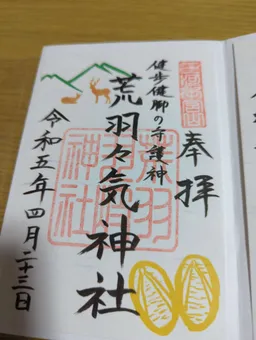 奉拝
健歩健脚の守護神
荒羽々気神社
令和五年四月二十三日